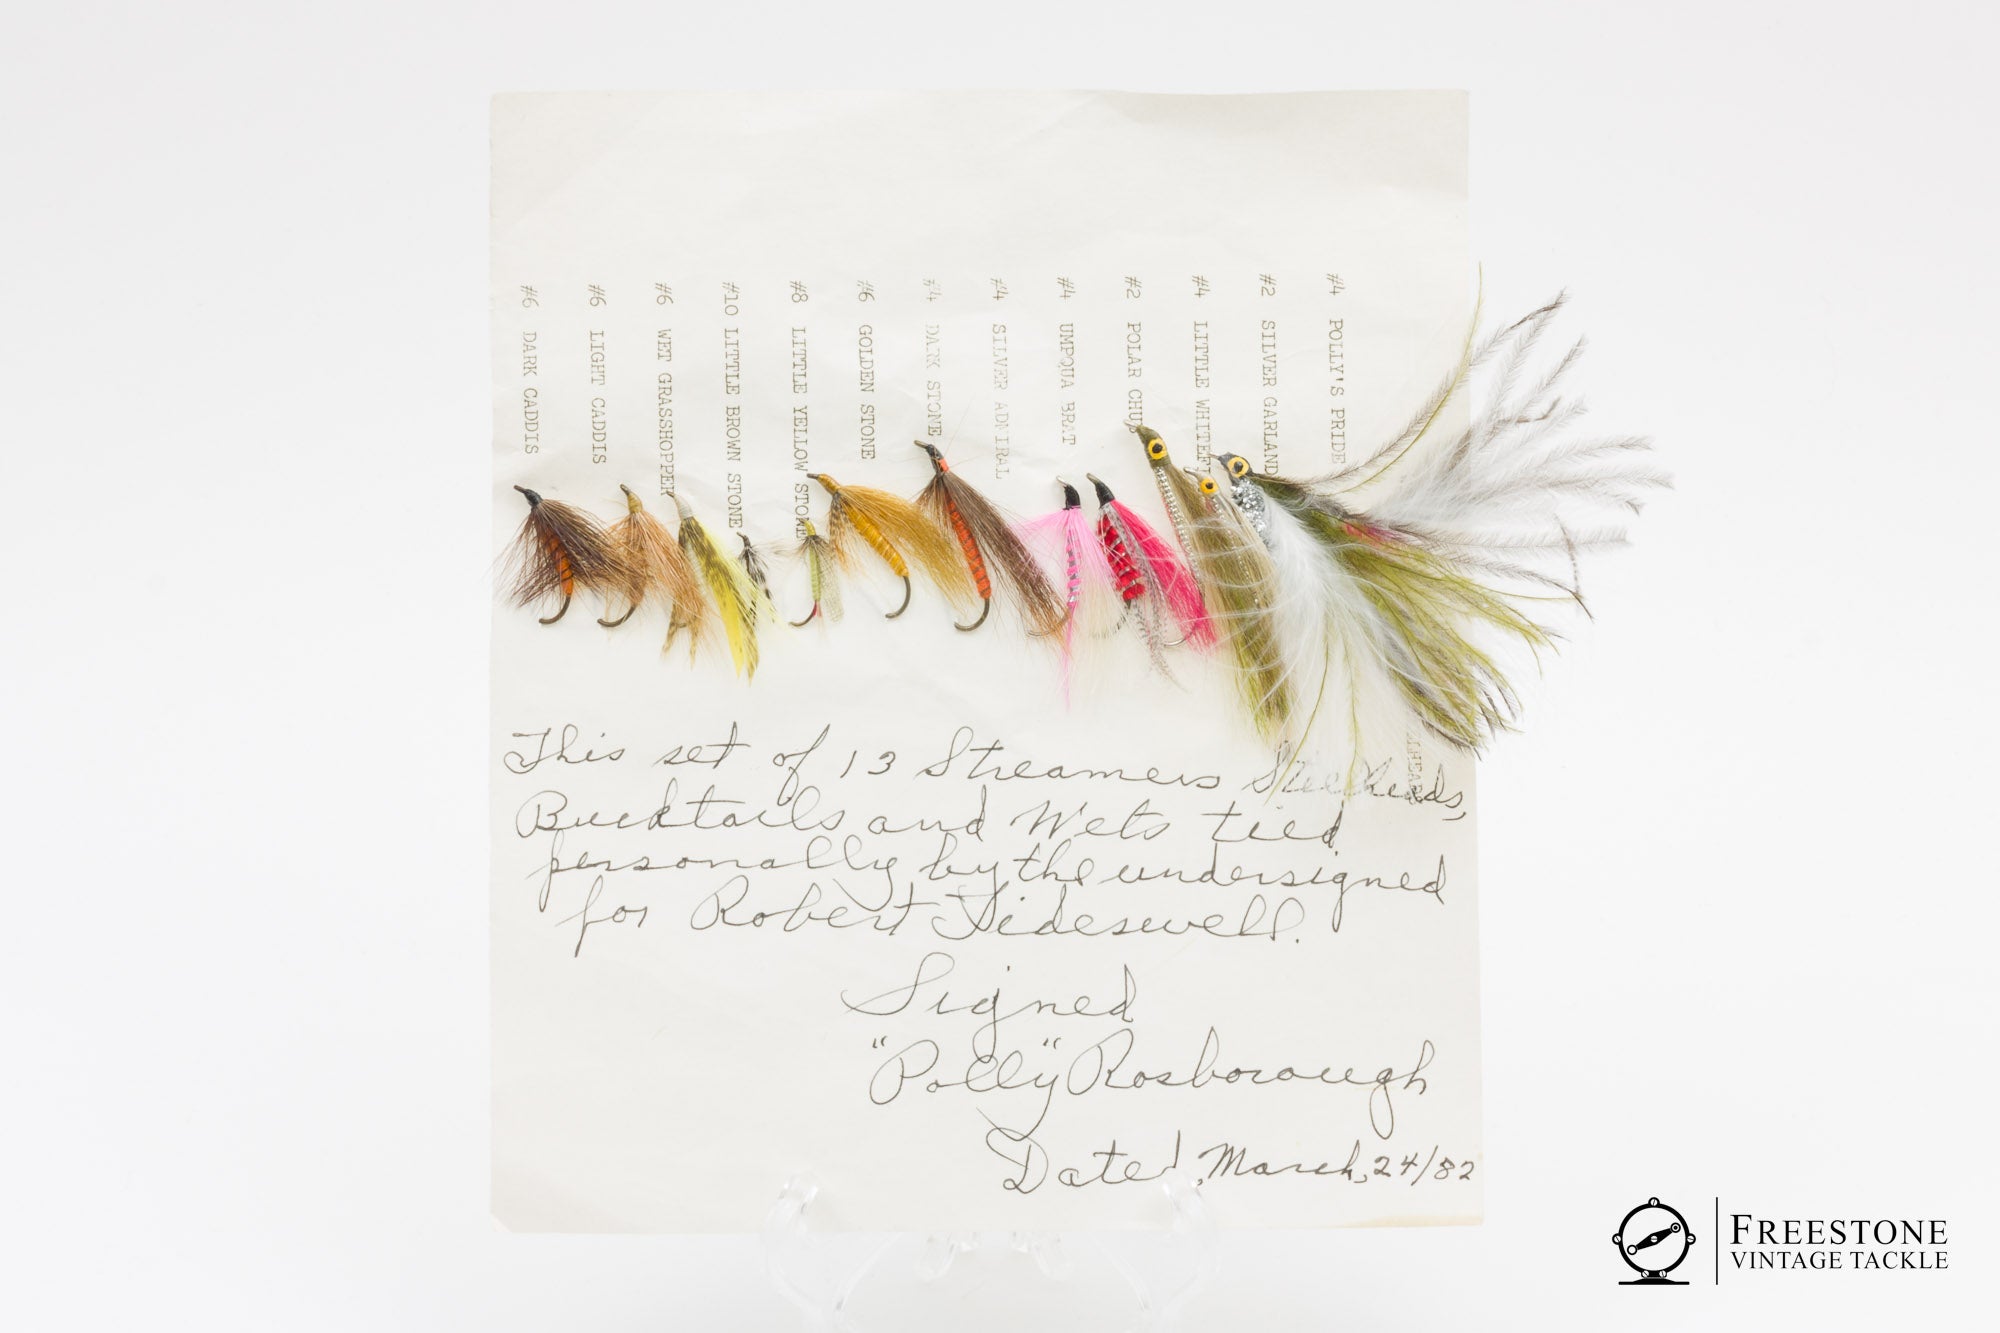 #6 DARK CADDIS
#6 LIGHT CADDIS
#6 WET GRASSHOPPER
#10 LITTLE BROWN STONE
#8 LITTLE YELLOW STONE
#6 GOLDEN STONE
#4 DARK STONE
#4 SILVER ADMIRAL
#4 UMPQUA BRAT
#2 POLAR CHUB
#4 LITTLE WHITEF
#2 SILVER GARLAND
#4 POLLY'S PRIDE
This set of 13 Streamers Steelheads,
Bucktails and Wets tied
personally by the undersigned
for Robert Tideswell.
Signed
"Polly" Rosborough
Dated, March, 24/82
FREESTONE
VINTAGE TACKLE